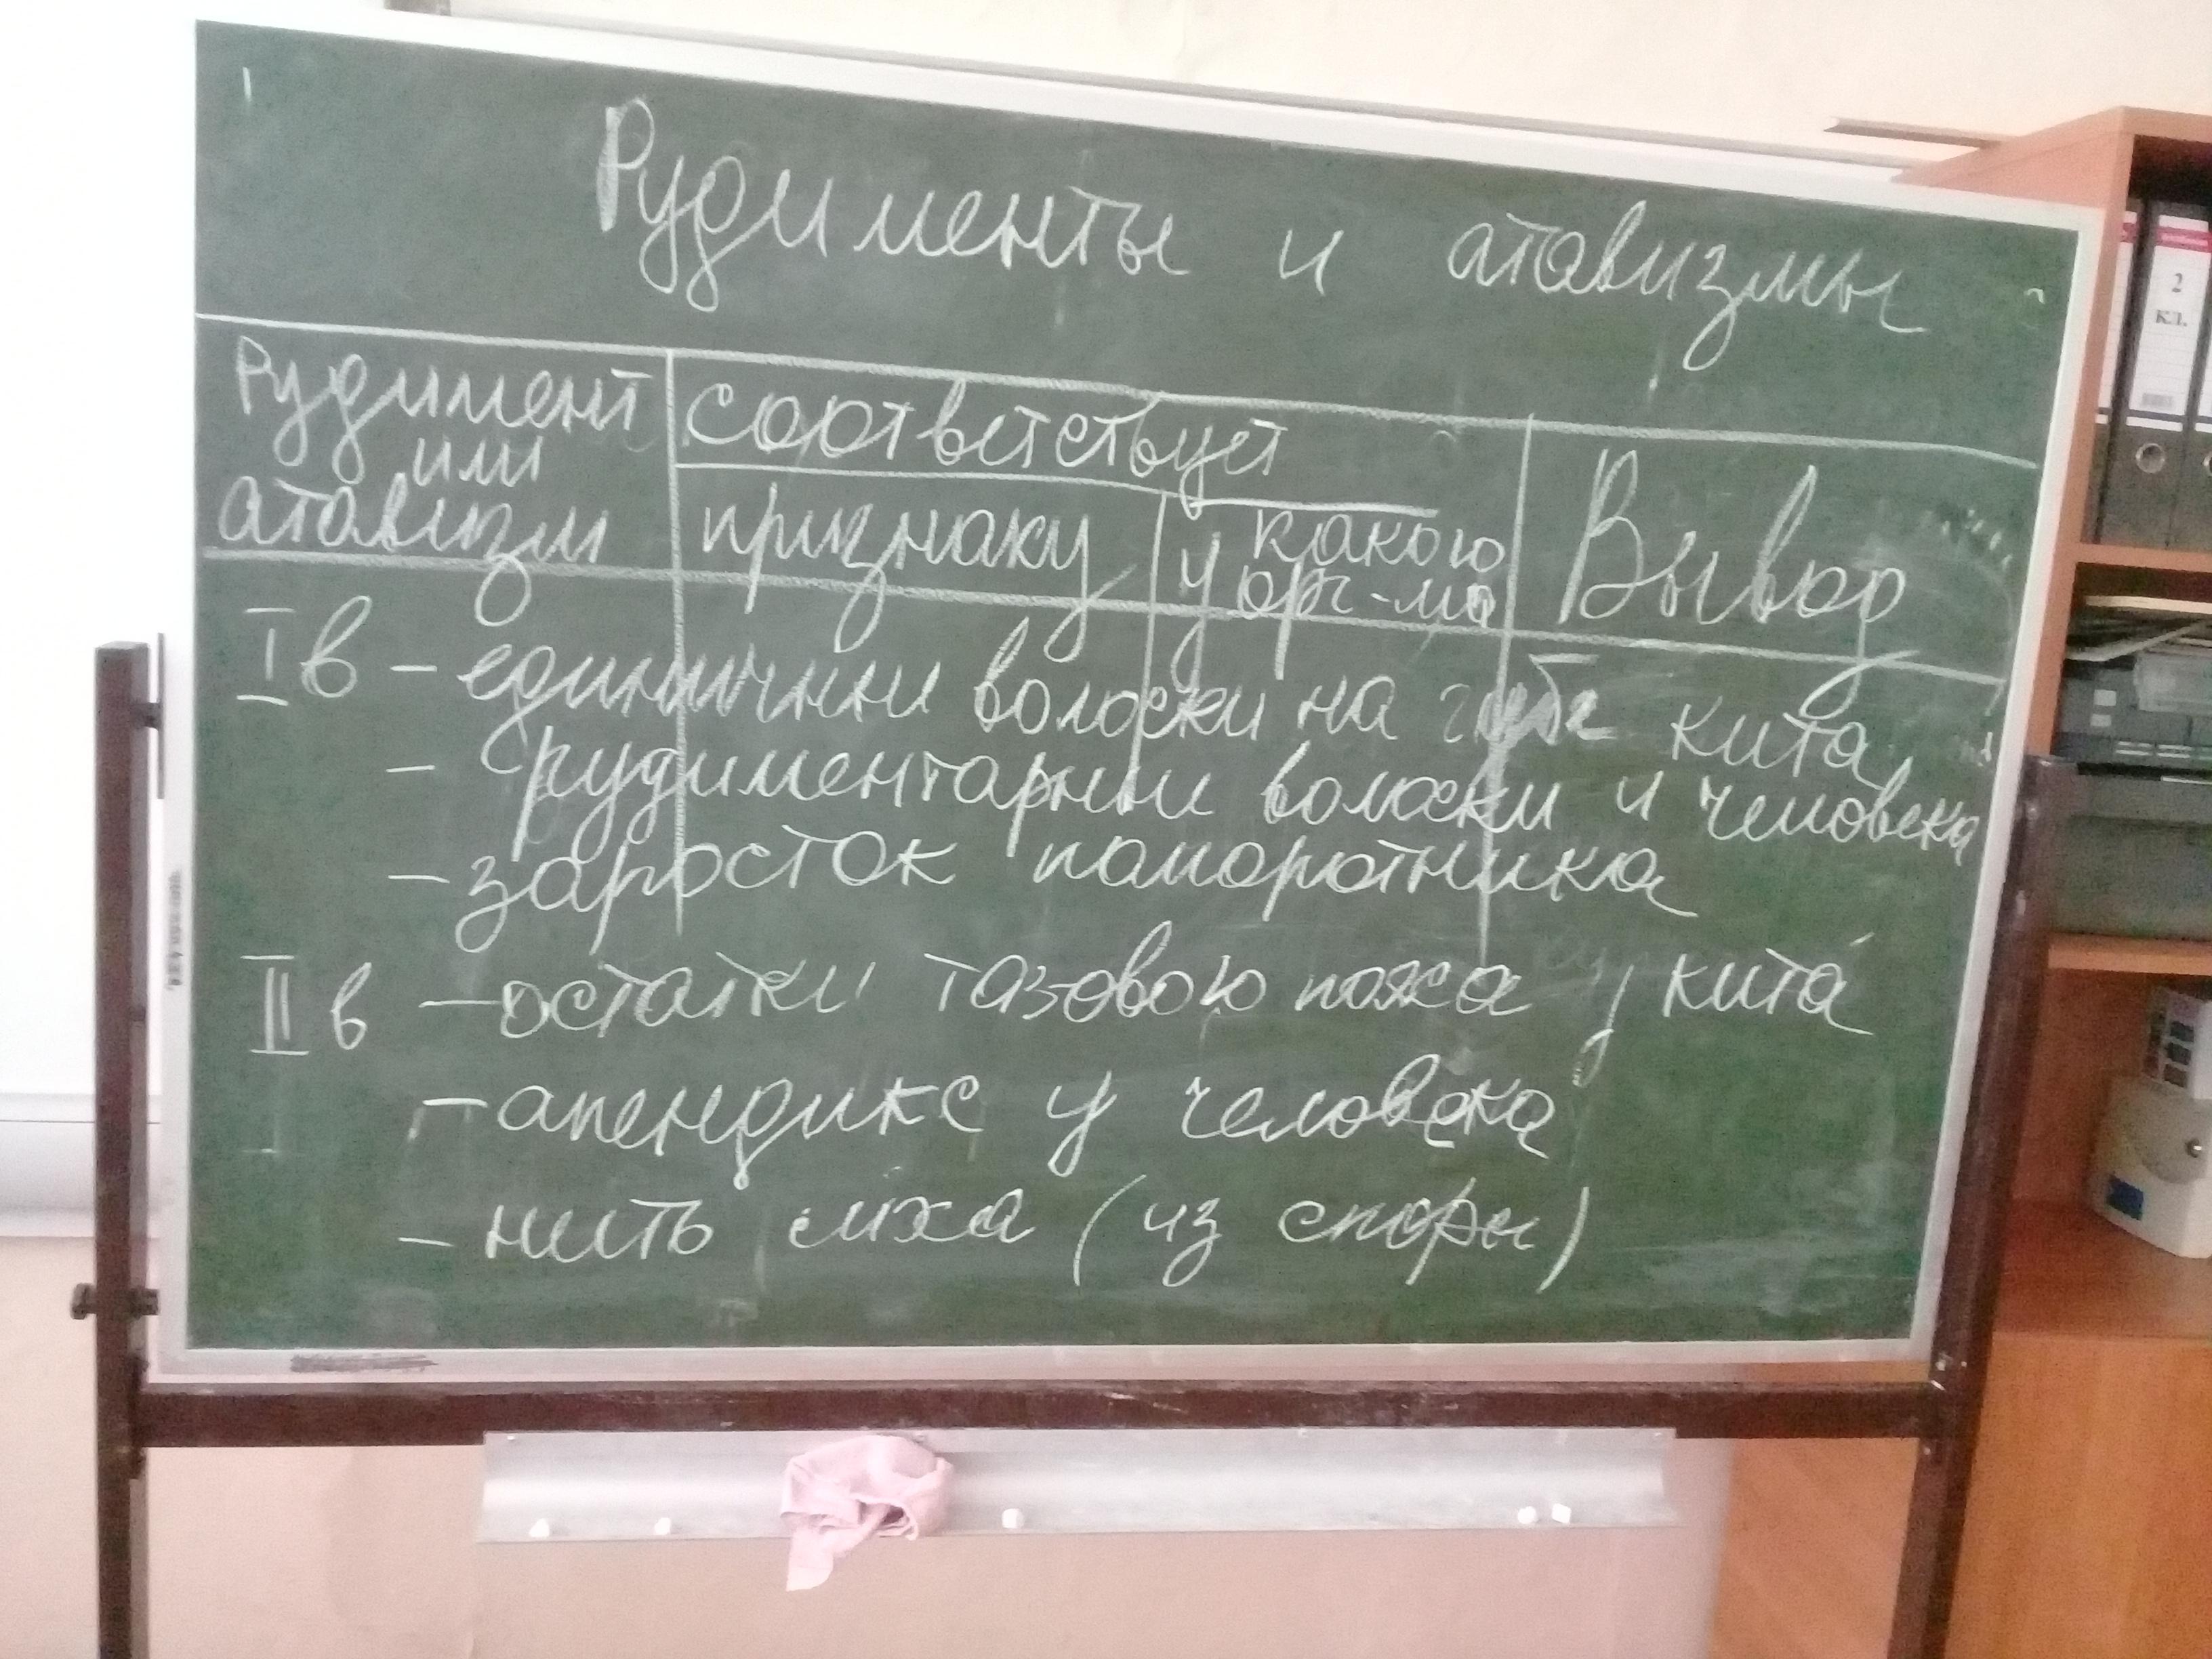 Рудименты и атавизмы
Рудимент
или
атавизм
соответствует
признаку
у какого
орг-ма
Вывод
I в - единичные волоски на губе кита
- рудиментарные волоски ч человека
- заросток папоротника
II в - остатки тазового пояса у кита
- апендикс у человека
- нить мха (из споры)
2
кл.